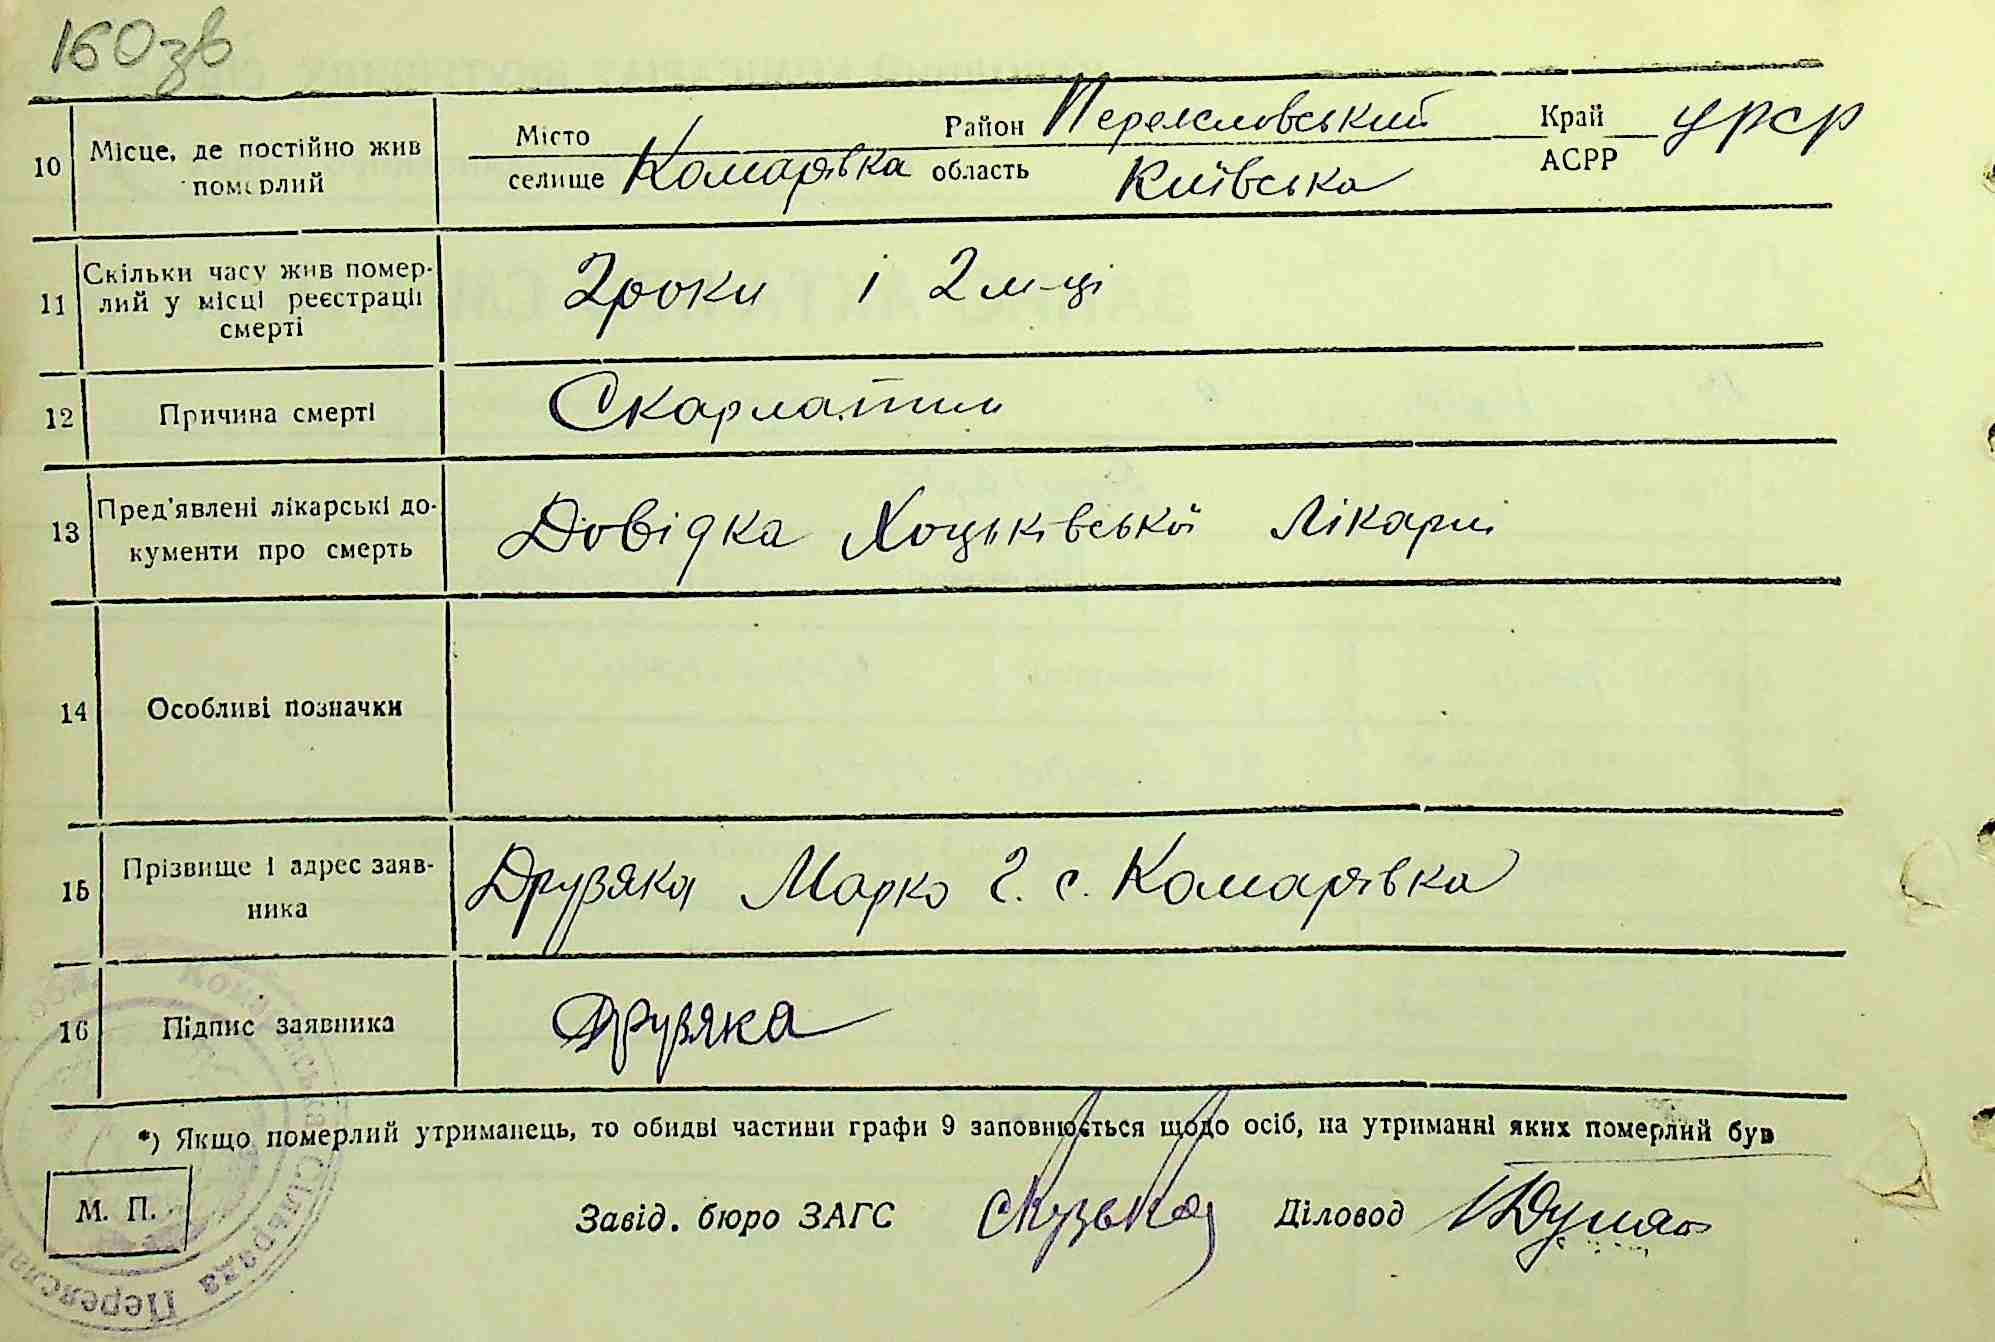 160зв
Місто Район Переяславський Край УРСР
10 Місце, де постійно жив померлий селище Комарівка область Київська АСРР
11 Скільки часу жив помер-
лий у місці реєстрації
смерті
2 роки і 2 м-ці
12 Причина смерті Скарлатина
13 Пред'явлені лікарські до-
кументи про смерть
Довідка Хоцьківської лікарні
14 Особливі позначки
15 Прізвище і адрес заяв-
ника
Друзяка Марко Г. с. Комарівка
16 Підпис заявника Друзяка
*) Якщо померлий утриманець, то обидві частини графи 9 заповнюється щодо осіб, на утриманні яких померлий був
М. П. Завід. бюро ЗАГС Діловод
Сільрада Переяслав